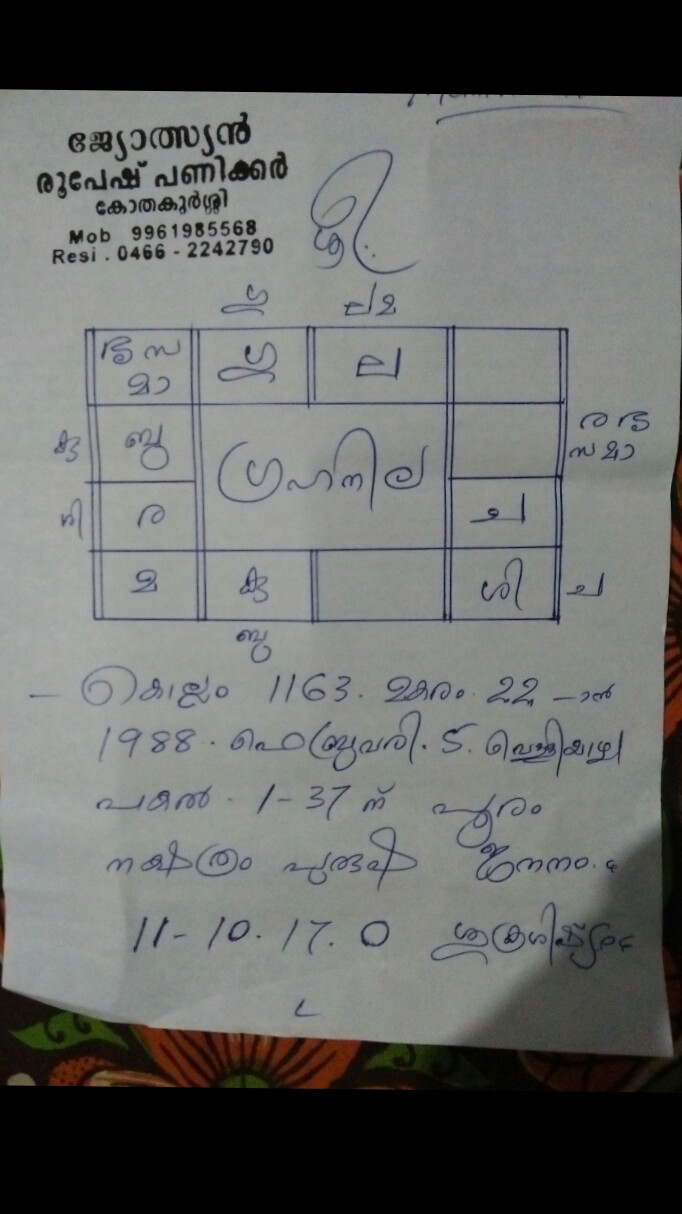 ജ്യോത്സ്യൻ
രൂപേഷ് പണിക്കർ
കോതകുർശ്ശി
Mob 9961985568
Resi . 0466 - 2242790
ശ്രീ.
ഗു ലമ
ശു സ ഗു ല
മാ
കു ബു ഗ്രഹനില ര ശു
സ മാ
ശി ര ച
മ കു ശി ച
ബു
– കൊല്ലം 1163. മകരം. 22 –ാൻ
1988. ഫെബ്രുവരി. 5. വെള്ളിയാഴ്ച
പകൽ. 1-37 ന് പൂരം
നക്ഷത്രം പുരുഷ ജനനം.
11-10.17.0 ശുക്രശിഷ്ടം